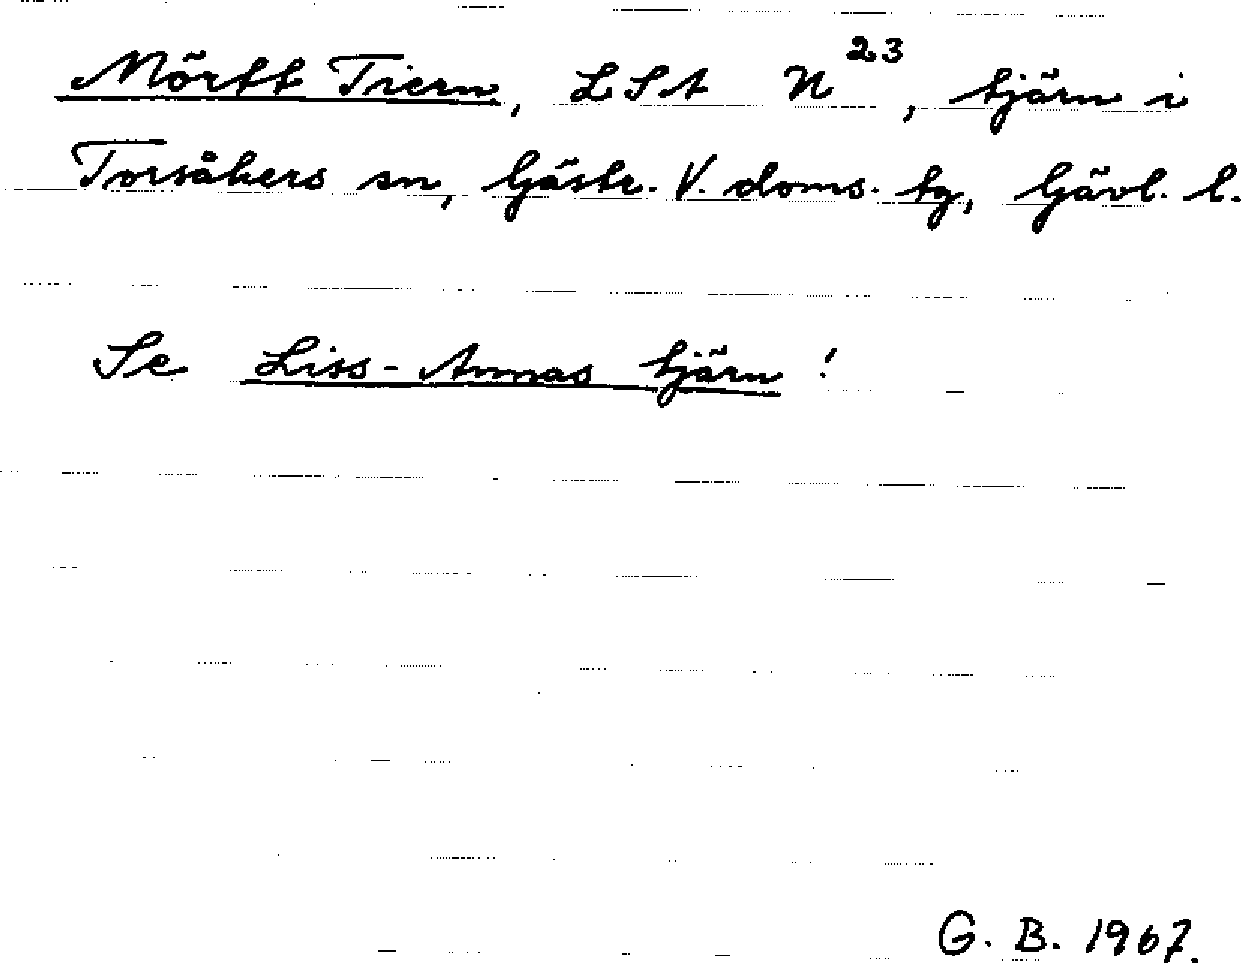 Mörtt Tiern, LSA N²³, tjärn i
Torsåkers sn, Gästr. V. doms. tg, Gävl. l.
Se Liss-Annas tjärn !
G. B. 1967.